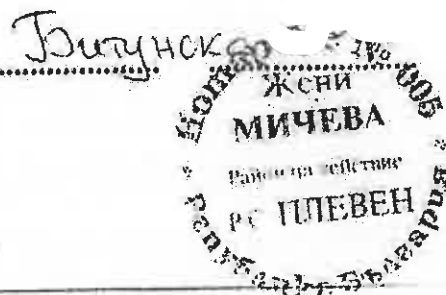 Битунск
№ 005
Жени
МИЧЕВА
Район на действие
РС ПЛЕВЕН
Република България